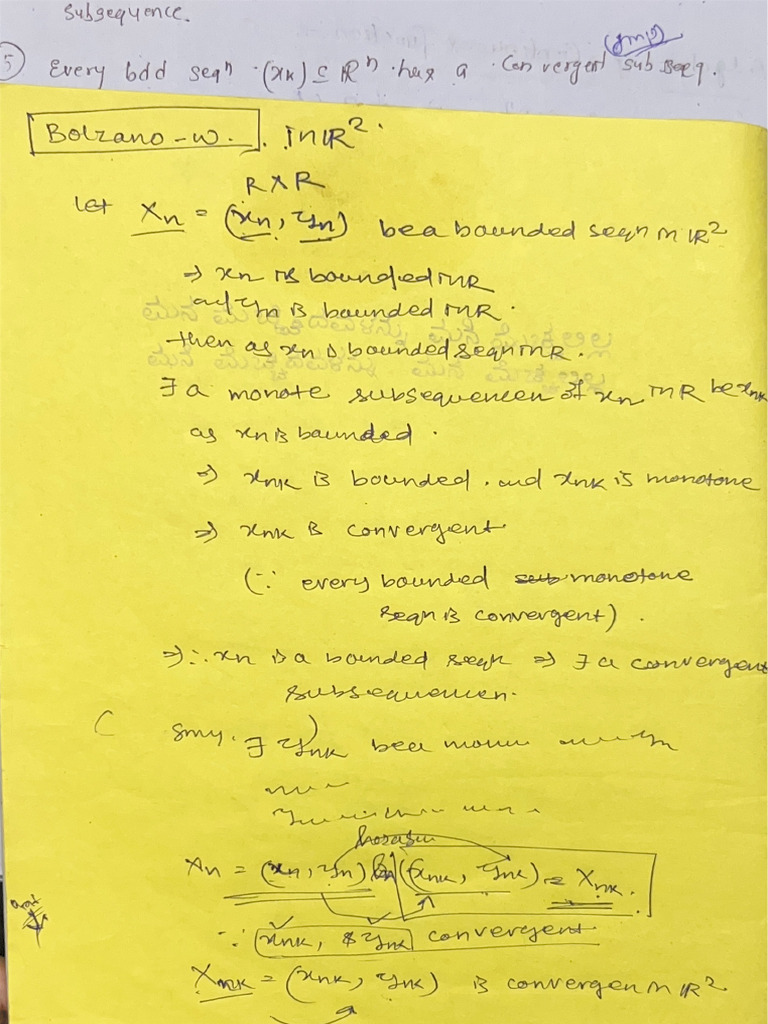 subsequence.
5) Every bdd seqn (xk) ⊆ ℝⁿ has a Convergent subseq. (Imp)
Bolzano - W. in ℝ².
R X R
Let Xn = (xn, yn) be a bounded seqn in ℝ²
⇒ xn is bounded in R
and yn is bounded in R.
then as xn is bounded seqn in R.
∃ a monote subsequencen of xn in R be xnk
as xn is bounded.
⇒ xnk is bounded. and xnk is monotone
⇒ xnk is convergent
(∵ every bounded monotone
seqn is convergent).
⇒ ∴ xn is a bounded seqn ⇒ ∃ a convergent
subsequencen.
( smy. ∃ ynk bee
Xn = (xn, yn) (xnk, ynk) = Xnk.
∵ xnk, & ynk convergent
Xnk = (xnk, ynk) is convergen in ℝ².